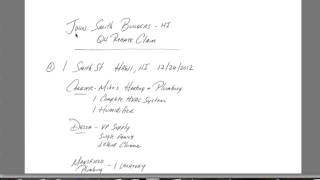 John Smith Builders - HI
Q4 Rebate Claim
① 1 Smith St Hawi, HI 12/20/2012
Carrier - Mike's Heating + Plumbing
1 Complete HVAC System
1 Humidifier
Delta - VP Supply
Single Family
Mansfield - 1 Lavatory
Plumbing